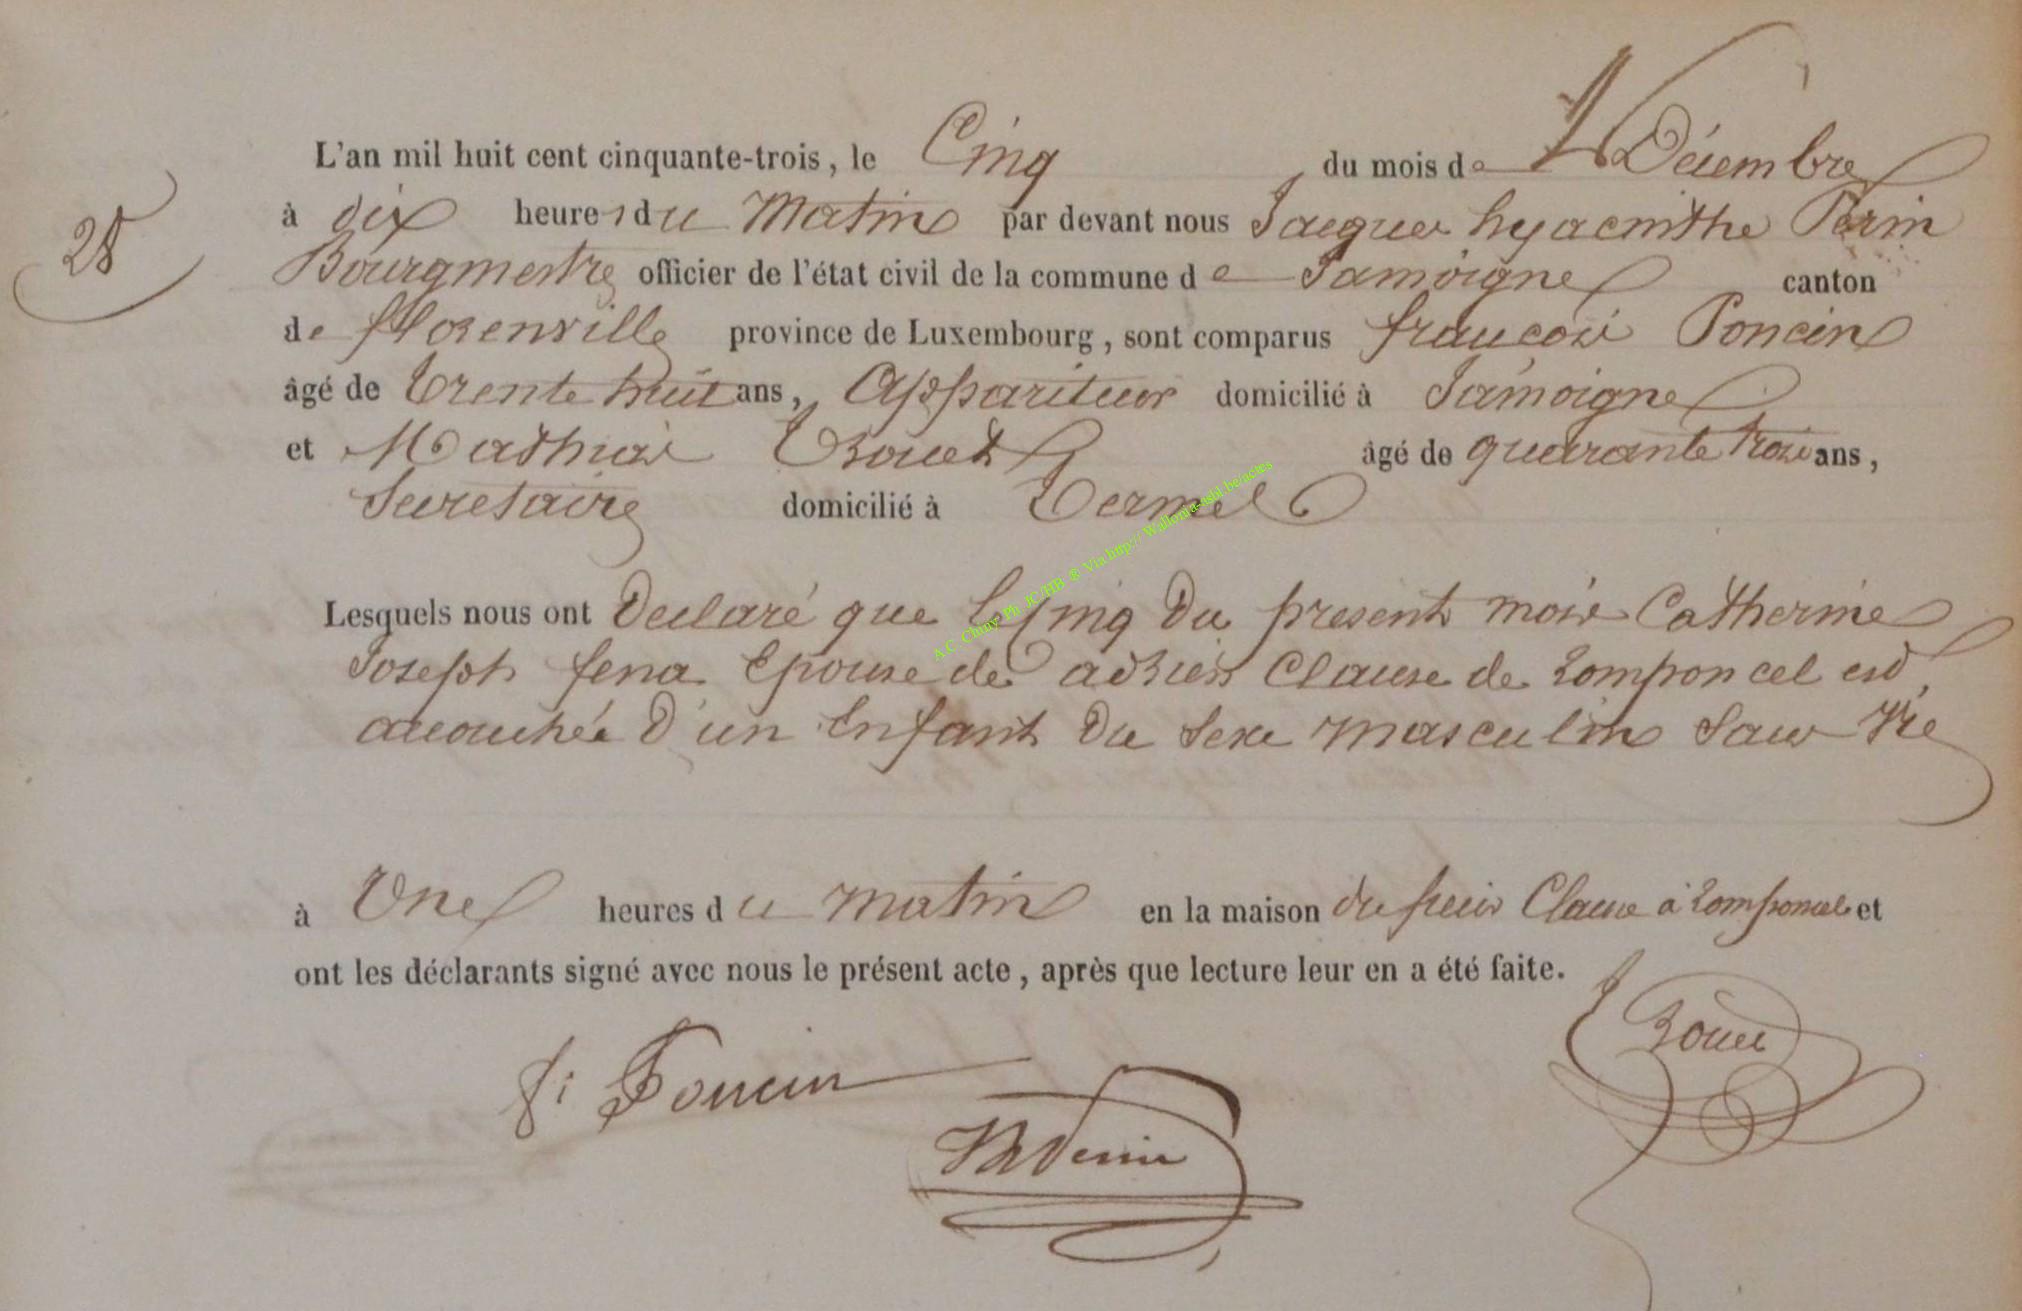 L'an mil huit cent cinquante-trois, le Cinq du mois de Décembre
28
à dix heures du Matin par devant nous Jacques hyacinthe Perin
Bourgmestre officier de l'état civil de la commune de Jamoigne canton
de florenville province de Luxembourg, sont comparus francois Poncin
âgé de trente huit ans, Appariteur domicilié à Jamoigne
et Mathias Trouet âgé de quarante trois ans,
Secretaire domicilié à Termes
Lesquels nous ont Declaré que le Cinq Du present mois Catherine
Joseph fena Epouse de adrien Clause de Romponcel est
accouchée d'un Enfant Du sexe masculin sans vie
à Une heures du matin en la maison du sieur Clause à Romponcel et
ont les déclarants signé avec nous le présent acte, après que lecture leur en a été faite.
Trouet
Poncin
Perin
A.C. Chiny Ph JC/HB ® Via http://Wallonia-asbl.be/actes